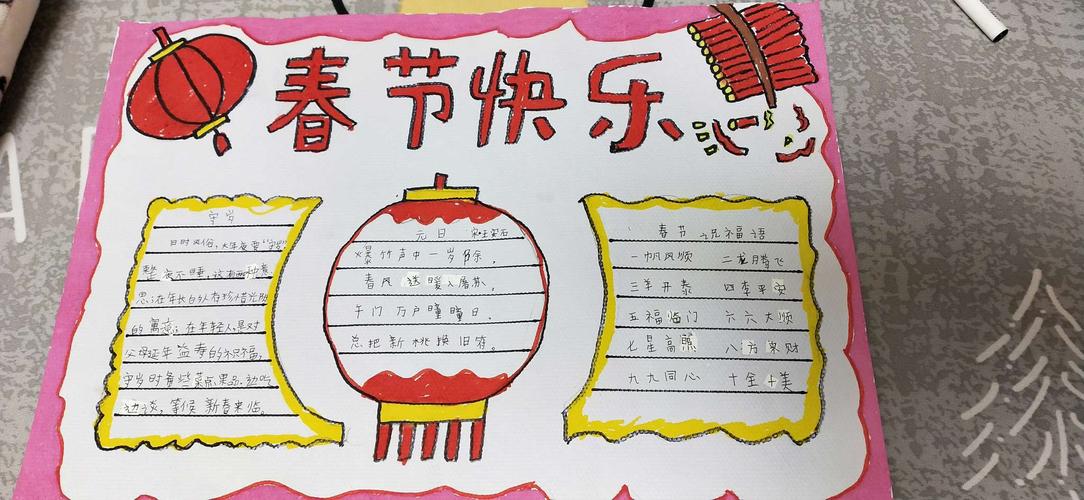 春节快乐
守岁
旧时风俗，大年夜要“守岁”
整夜不睡，这有两种意
思：在年长的人有珍惜光阴
的寓意；在年轻人是对
父母延年益寿的祝福，
守岁时备些菜点果品，边吃
边谈，等候新春来临。
元日 宋·王安石
爆竹声中一岁除，
春风送暖入屠苏。
千门万户曈曈日，
总把新桃换旧符。
春节祝福语
一帆风顺 二龙腾飞
三羊开泰 四季平安
五福临门 六六大顺
七星高照 八方来财
九九同心 十全十美